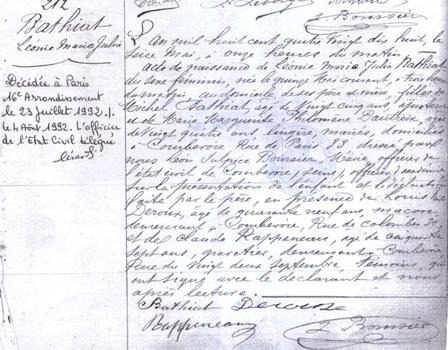 212
Bathiat
Léonie Maria Julia
Décédée à Paris
16e Arrondissement
le 23 juillet 1992 ./.
le 4 Août 1992. L'officier
de l'Etat Civil délégué
L. Boursier
L'An mil huit cent quatre vingt dix huit, le
seize Mai, à onze heures du matin
Acte de naissance de Léonie Maria Julia Bathiat
du sexe féminin, née le quinze Mai courant, à trois heures
du matin, au domicile de ses père et mère, fille de
Michel Bathiat, agé de vingt cinq ans,
et de Marie Marguerite Philomène Dautreix, agée
de vingt quatre ans, lingère, mariés, domiciliés
à Courbevoie, Rue de Paris 33, dressé par
nous Léon Sulpice Boursier, Maire officier de
l'état civil de Courbevoie, (Seine),
sur la présentation de l'enfant et déclaration
faite par le père, en présence de Louis
Deroux, agé de quarante neuf ans, maçon,
demeurant à Courbevoie, Rue de Colombes
et de Claude Rappeneau, agé de cinquante
sept ans, gravatier, demeurant à Courbevoie
Rue du vingt deux Septembre, témoins qui
ont signé avec le déclarant et nous
après lecture.
Bathiat Deroux
Rappeneau L. Boursier